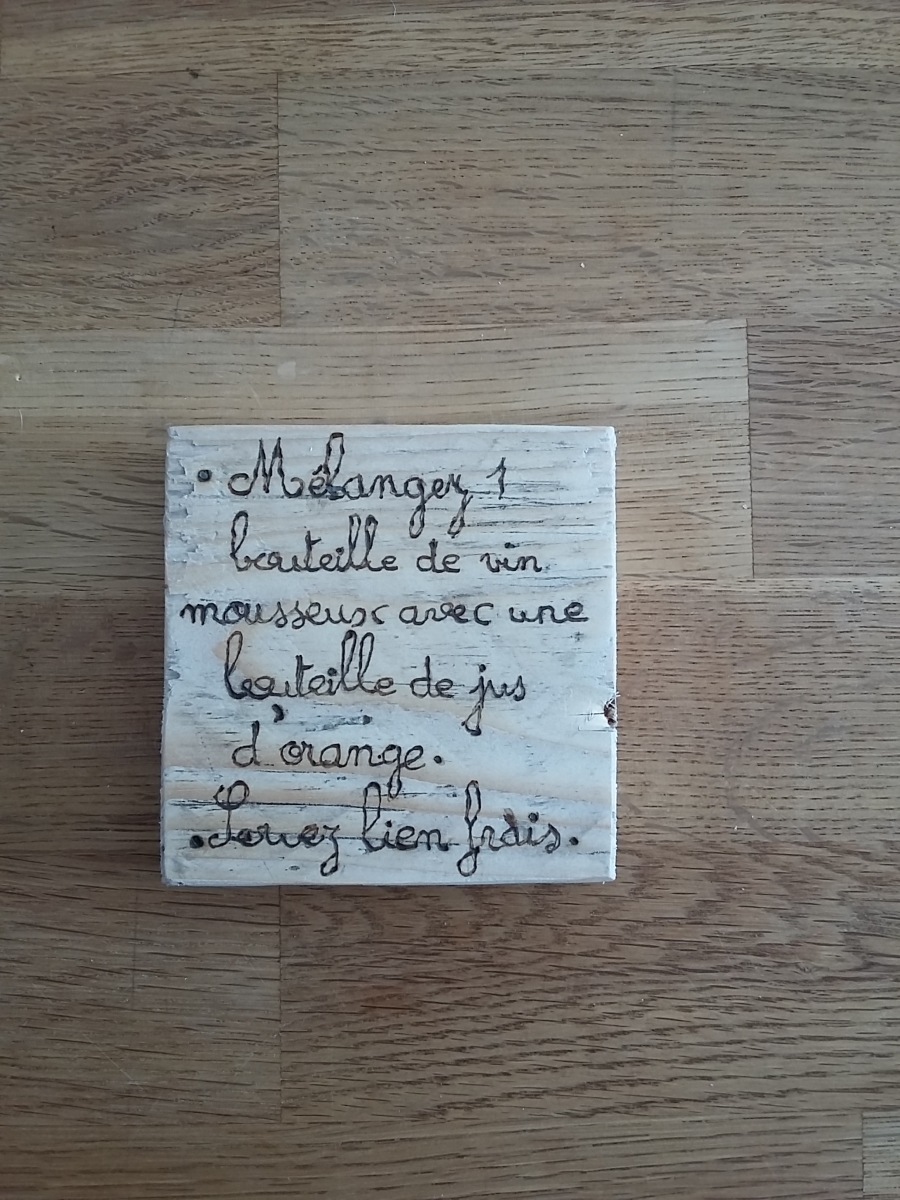 • Mélangez 1
bouteille de vin
mousseux avec une
bouteille de jus
d'orange.
• Servez bien frais.